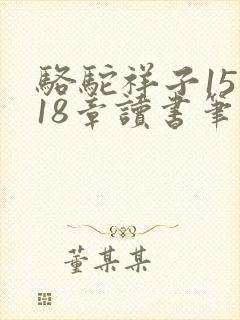 駱駝祥子15
18章讀書筆
董某某